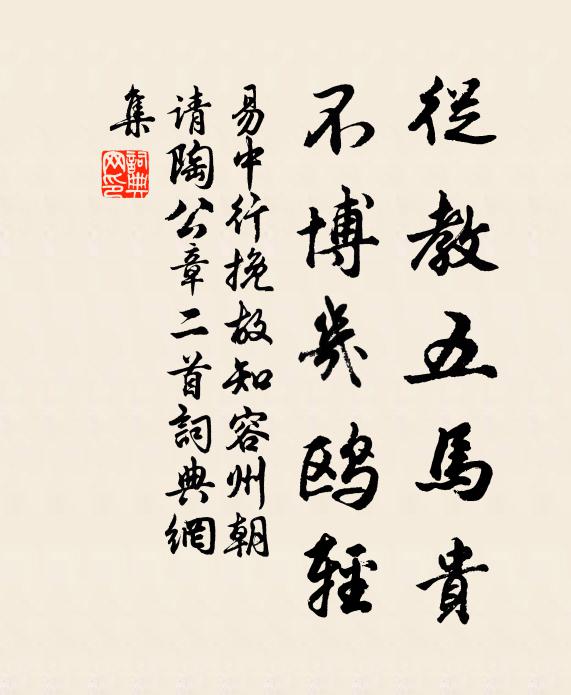 從教五馬貴
不博幾鷗輕
易中行挽故知容州朝
请陶公章二首詞典網
集
詞典
网印